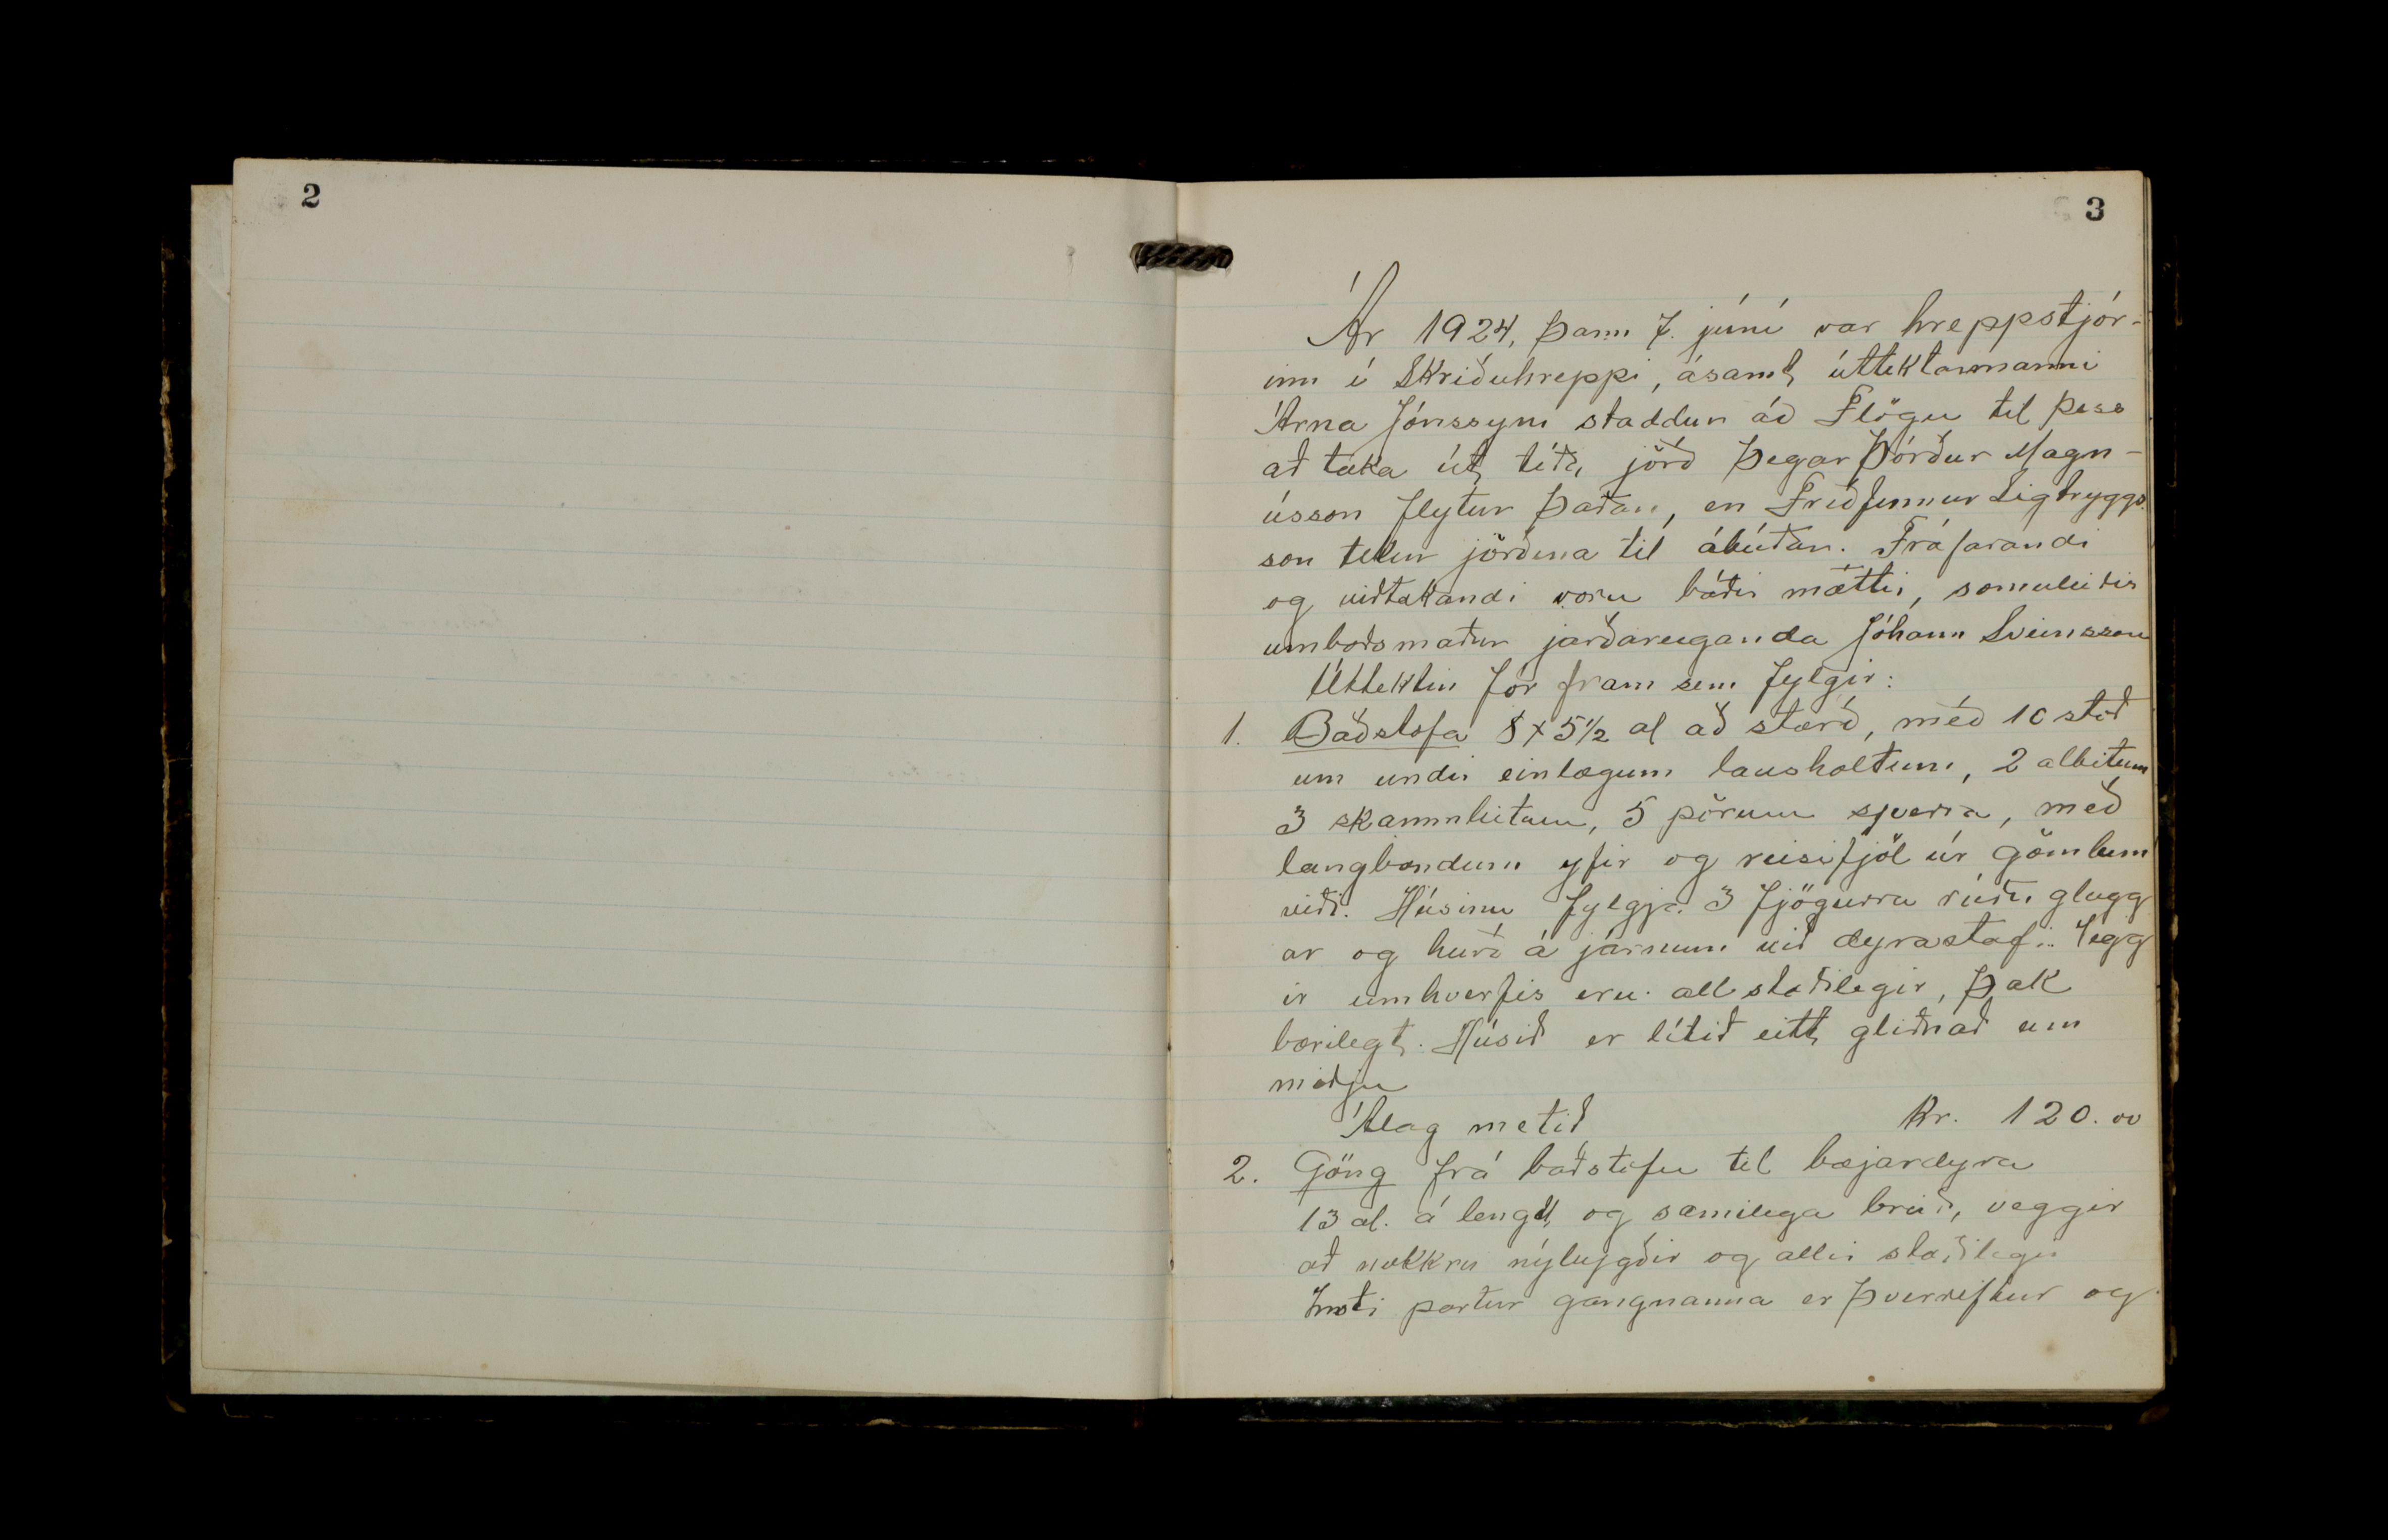 2
3
Ár 1924, þann 7. júní var hreppstjór-
inn í Skriðuhreppi, ásamt úttektarmanni
Árna Jónssyni staddur að Flögu til þess
að taka út téða jörð þegar Þórður Magn-
ússon flytur þaðan, en Friðfinnur Sigtryggs
son tekur jörðina til ábúðar. Fráfarandi
og viðtakandi voru báðir mættir, sömuleiðis
umboðsmaður jarðareiganda Jóhann Sveinsson
Úttektin fór fram sem fylgir:
1. Baðstofa 8 x 5 1/2 al að stærð, með 10 stoð
um undir einlægum lausholtum, 2 allbitum
3 skammbitum, 5 pörum sperra, með
langböndum yfir og reisifjöl úr gömlum
viði. Húsinu fylgja 3 fjögurra rúðu glugg
ar og hurð á járnum við dyrastafi. Vegg
ir umhverfis eru allstæðilegir, þak
bærilegt. Húsið er lítið eitt gliðnað um
miðju
Álag metið Kr. 120.00
2. Göng frá baðstofu til bæjardyra
13 al. á lengd og sæmilega breið, veggir
að nokkru nýbygðir og allir stæðilegir
partur gangnanna er þverreftur og